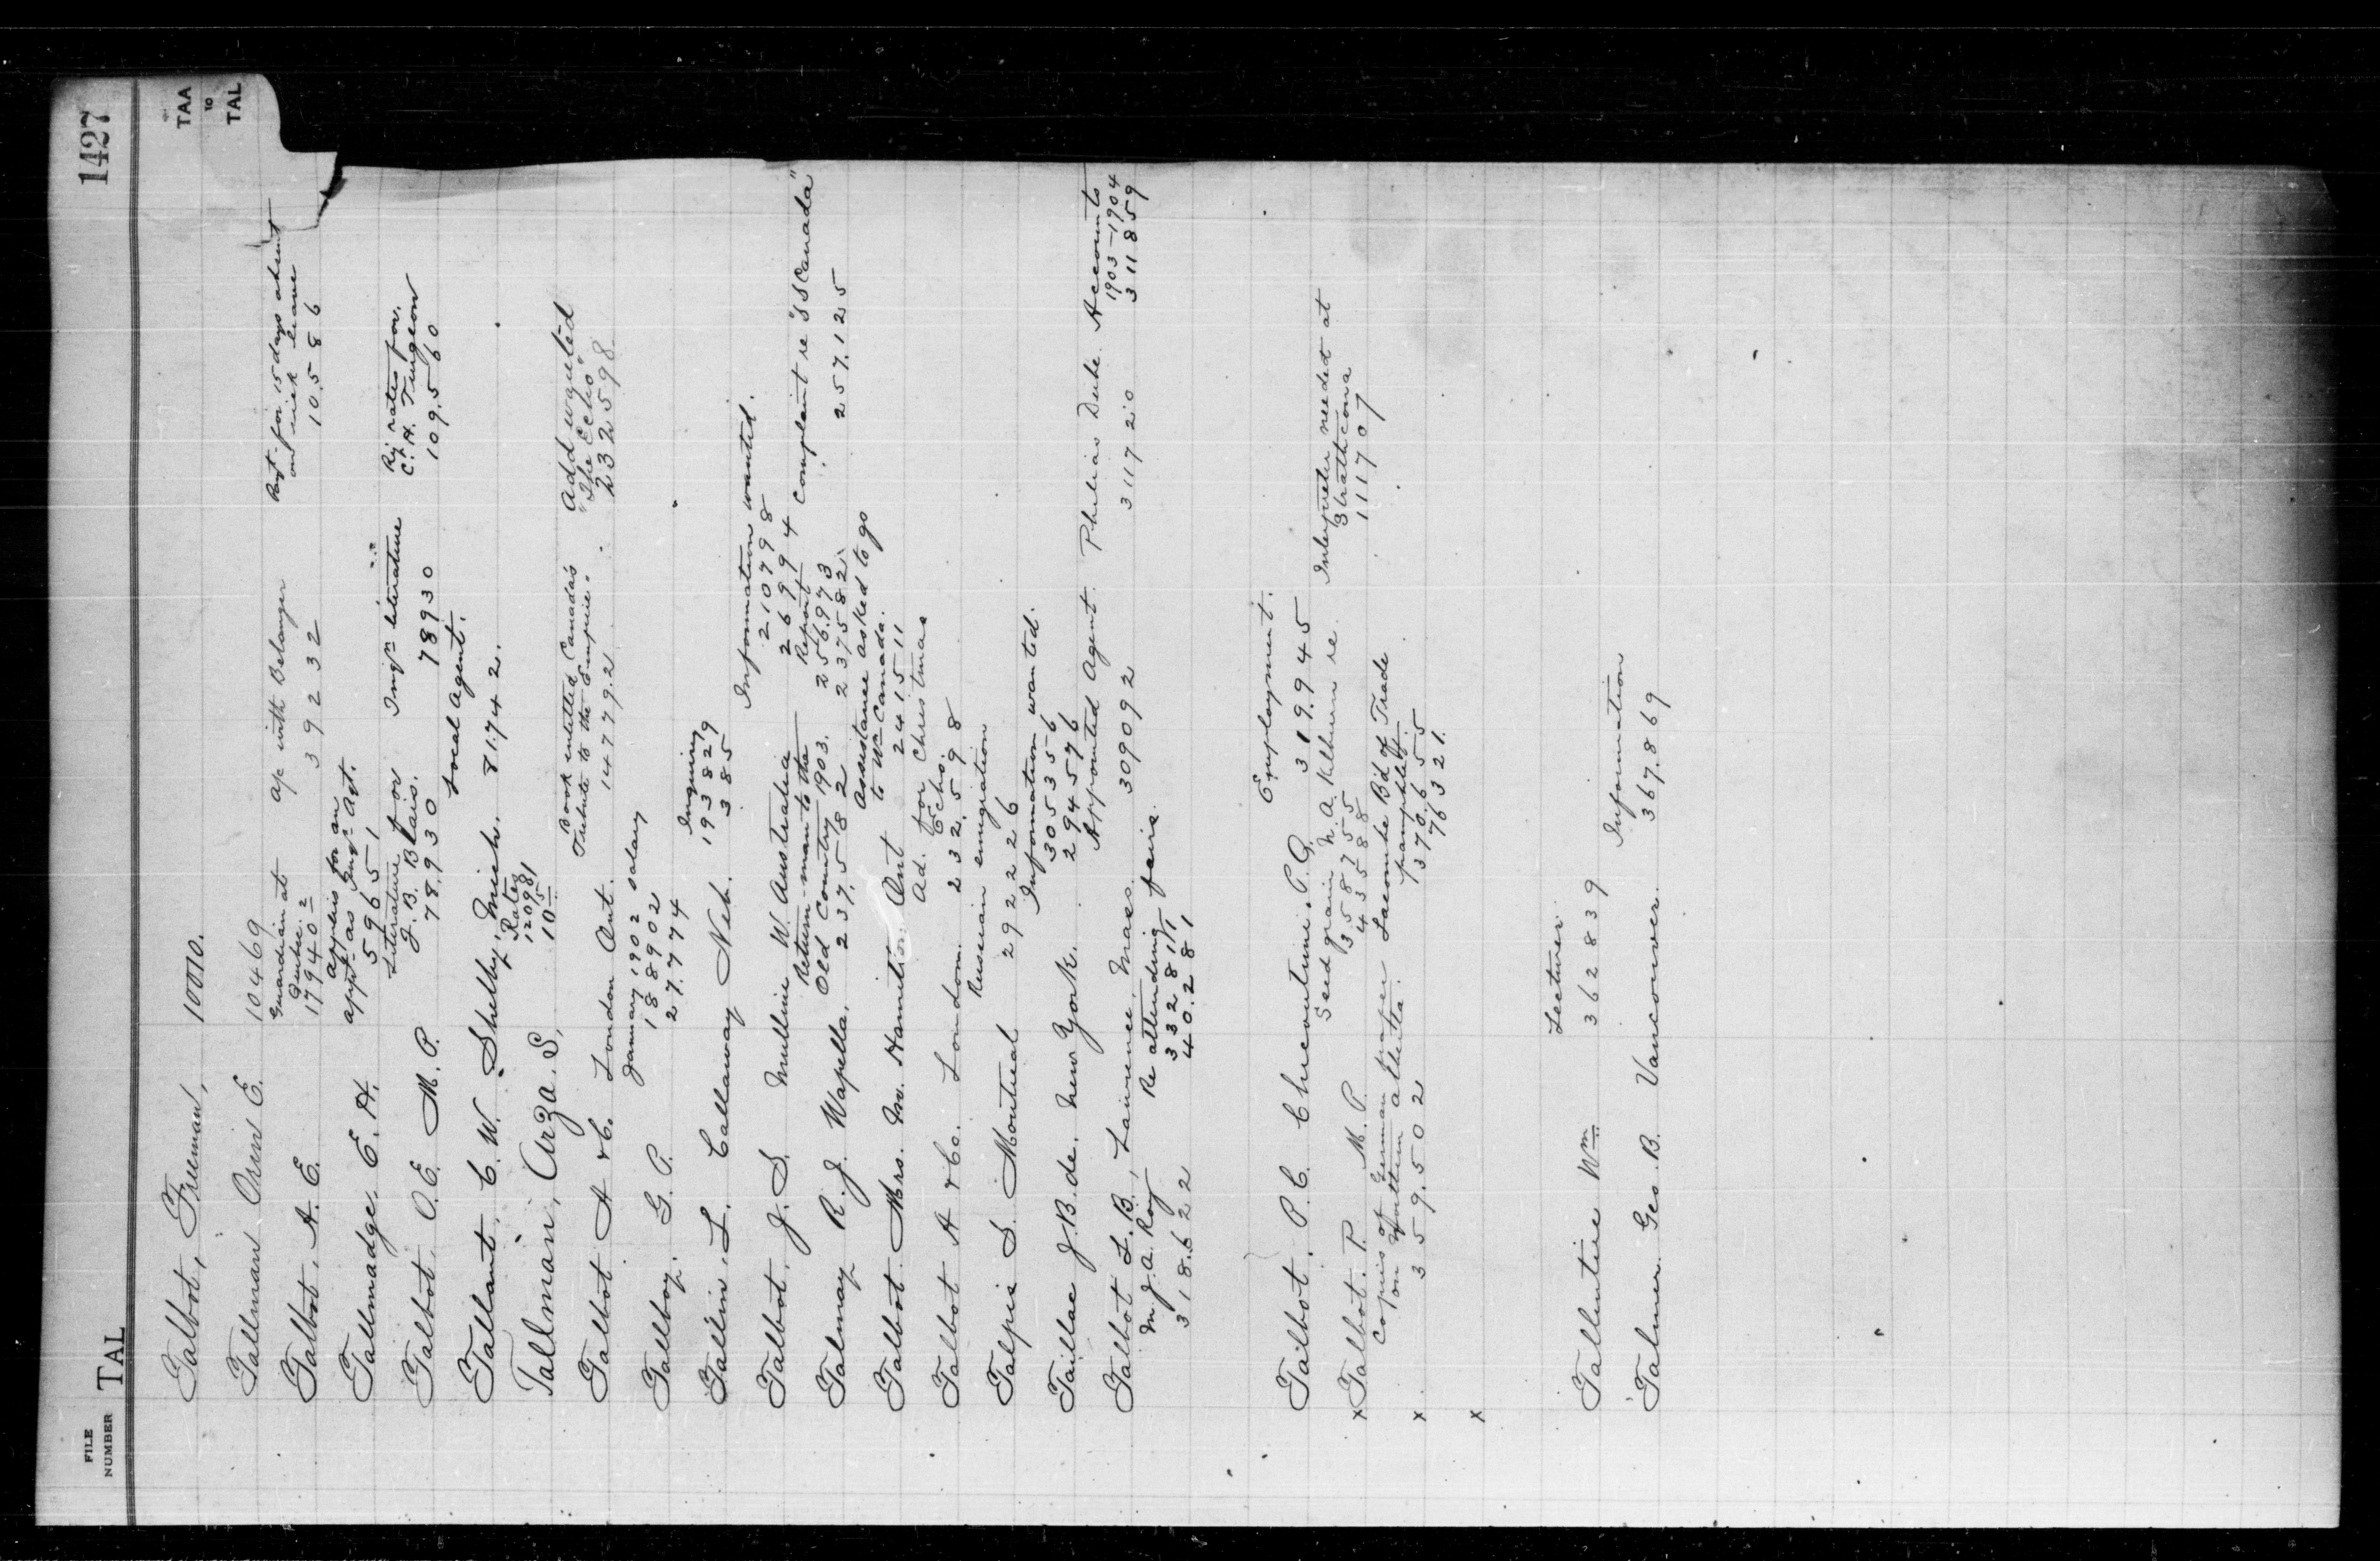 1427
TAA
TO
TAL
FILE
NUMBER
TAL
Talbot, Freeman, 10010.
Tallman Orin E. 10469
Talbot, A. E. Guardian at Quebec 179402 ap with Belanger 39232 Payt for 15 days absent on sick leave 10586
Tallmadge, E. H. applies for an appt as Imgn Agt. 59651
Talbot, O. E. M. P. Literature for J. B. Blais. 78930 Imgn literature 78930 Ry rates for C. A. Turgeon 109560
Tallant, C. W. Shelby, Mich. 81742. Local Agent.
Tallman, Arza. S, Rates 120981
Talbot A & Co. London Ont. Book entitled Canada's Tribute to the Empire. 147792 Add wanted "The Echo" 232598
Tallboy. G. P. January 1902 salary 188902
27.774
Tallin, L. Callaway Neb. Inquiry 193829
385
Talbot, J. S. Mulline W. Australia Information wanted.
210798
Talmay R. J. Wapella. Return-man to the Old Country 1903. 237582 269994 Report 256973 237582 Complaint re "SS Canada" 257125
Talbot Mrs. M. Hamilton Ont Assistance asked to go to Wn Canada. 241511
Talbot A & Co. London. Ad. for Christmas Echo. 232598
Talpis S. Montreal Russian emigration 292226
Taillac J. B. de. New York. Information wanted.
305356
294576
Talbot L. B., Lawrence, Mass. Appointed Agent. 309092 Philias Dube 311720 Accounts 1903-1904 311859
M J. A. Roy 318622 Re attending fairs. 332811
40281
Talbot. P. C. Chicoutimi. P. Q. Employment. 319945
x Talbot. P. M. P. Seed grain 358755
43588
N. A. Kilburn re. Interpreter needed at Strathcona 111707
x Copies of German paper on Northern Alberta. 359502 Lacombe B'd of Trade pamphlet. 370655
76321.
x
Tallentire Wm Lecturer 362839
Talmer Geo. B. Vancouver. Information 367869